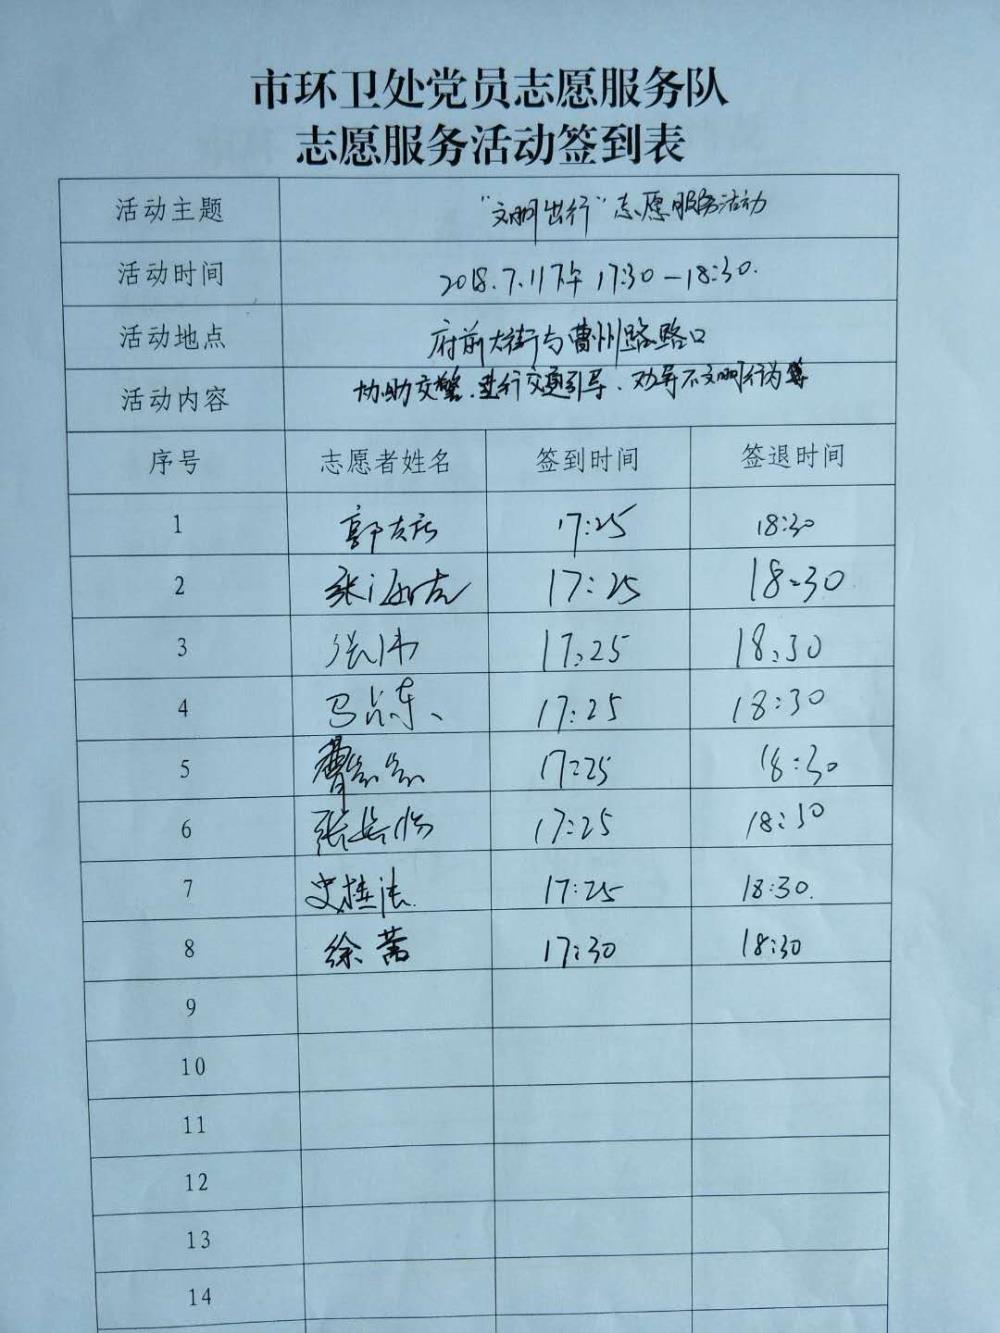 市环卫处党员志愿服务队
志愿服务活动签到表
活动主题 "文明出行"志愿服务活动
活动时间 2018.7.11下午 17:30-18:30.
活动地点 府前大街与曹州路路口
活动内容 协助交警.进行交通引导、劝导不文明行为等
序号 志愿者姓名 签到时间 签退时间
1 郭 17:25 18:30
2 张海 17:25 18:30
3 张伟 17:25 18:30
4 马占东 17:25 18:30
5 曹 17:25 18:30
6 张 17:25 18:30
7 史桂法 17:25 18:30.
8 徐蕾 17:30 18:30
9
10
11
12
13
14